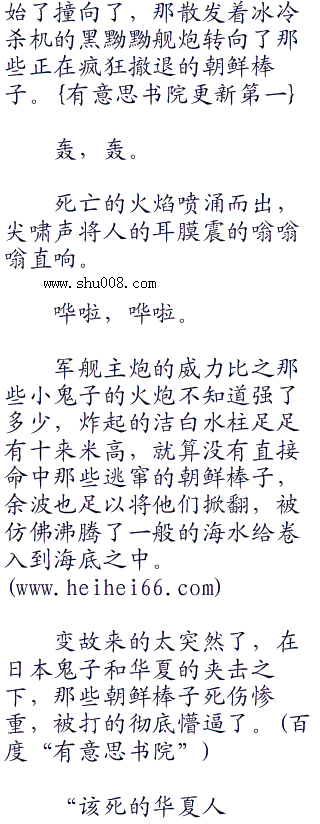 始了撞向了，那散发着冰冷
杀机的黑黝黝舰炮转向了那
些正在疯狂撤退的朝鲜棒
子。{有意思书院更新第一}
轰，轰。
死亡的火焰喷涌而出，
尖啸声将人的耳膜震的嗡嗡
嗡直响。
www.shu008.com
哗啦，哗啦。
军舰主炮的威力比之那
些小鬼子的火炮不知道强了
多少，炸起的洁白水柱足足
有十来米高，就算没有直接
命中那些逃窜的朝鲜棒子，
余波也足以将他们掀翻，被
仿佛沸腾了一般的海水给卷
入到海底之中。
(www.heihei66.com)
变故来的太突然了，在
日本鬼子和华夏的夹击之
下，那些朝鲜棒子死伤惨
重，被打的彻底懵逼了。(百
度“有意思书院”)
“该死的华夏人